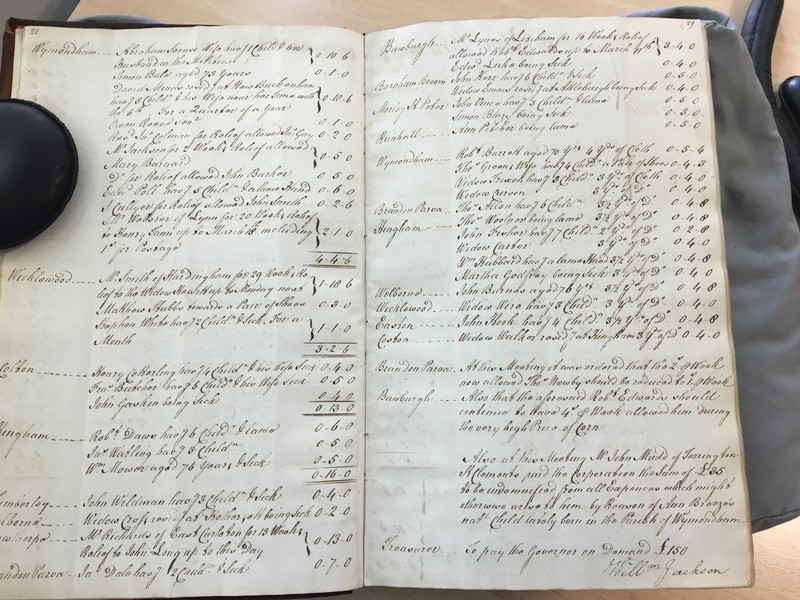 28
Wymondham Abraham Soons's Wife hav.g 1 Child & her
Husband in the
Simon Bale aged 73 Years 0-1-0
David Minns resid.g at New Buckenham
hav.g 3 Child.n & his Wife near her time with
the 6.th For a Quarter of a Year 0-10-6
Owen Reeves's Son 0-1-0
Rob.t Colman for Relief allowed Ja.s Gay 0-2-0
M.r Jackson for 2 Weeks Relief allowed
Mary Barnard 0-5-0
D.o for Relief allowed John Barker 0-5-0
Edw.d Pell hav.g 5 Child.n & a lame Hand 0-6-0
J. Culyer for Relief allowed John Smith 0-2-6
M.r Watson of Lynn for 20 Weeks Relief
to Henry Fam up to March 18 including
1.s for Postage 2-1-0
4-4-6
Wicklewood M.r Smith of Hardingham for 29 Weeks Re-
lief to the Widow up to Monday next 1-18-6
Matthew Stubbs towards a Pair of Shoes 0-3-0
Stephen White hav.g 2 Child.n & Sick. For a
Month 1-1-0
3-2-6
Colton Henry Cokerling hav.g 4 Child.n & his Wife Sick 0-4-0
Fra.s Butcher hav.g 6 Child.n & his Wife Sick 0-5-0
John Gaskin being Sick 0-4-0
0-13-0
Hingham Rob.t Daws hav.g 6 Child.n & Lame 0-6-0
Ja.s Watling hav.g 8 Child.n 0-5-0
W.m Mower aged 76 Years & Sick 0-5-0
0-16-0
Kimberley John Wildman hav.g 3 Child.n & Sick 0-4-0
Welborne Widow Cross resid.g at being Sick 0-2-0
M.r Richards of East Carleton for 13 Weeks
Relief to John Long up to this Day 0-13-0
Brandon Parva Ja.s Dale hav.g 2 Child.n & Sick 0-7-0
29
Bawburgh M.r Lynes of Lexham for 16 Weeks Relief
allowed Rob.t Edwards up to March 4.th 3-4-0
Edw.d Lake being Sick 0-4-0
Barnham Broom John Kerr hav.g 6 Child.n & Sick 0-5-0
Widow Emms resid.g at Attleburgh being Sick 0-4-0
Morley S.t Peter John Vince hav.g 3 Child.n & Lame 0-5-0
Simon Blazy being Sick 0-3-0
Runhall Ann Pitcher being lame 0-5-0
Wymondham Rob.t Barrett aged 70 Y.rs 4 Y.ds of Cloth 0-5-4
Tho.s Green's Wife hav.g 4 Child.n a Pair of Shoes 0-4-3
Widow Frixer hav.g 3 Child.n 3 Y.ds of Cloth 0-4-0
Widow Curson 3 Y.ds of D.o 0-4-0
Brandon Parva Tho.s Allen hav.g 6 Child.n 3½ Y.ds of D.o 0-4-8
Hingham Tho.s Woolnon being lame 3½ Y.ds of D.o 0-4-8
John Fisher hav.g 7 Child.n 2 Y.ds of D.o 0-2-8
Widow Carter 3 Y.ds of D.o 0-4-0
W.m Hubbard hav.g a lame Hand 3½ Y.ds of D.o 0-4-8
Martha Godfrey being Sick 3 Y.ds of D.o 0-4-0
Welborne John Burness aged 76 Y.rs 3½ Y.ds of D.o 0-4-8
Wicklewood Widow Wire hav.g 3 Child.n 3 Y.ds of D.o 0-4-0
Easton John Hook hav.g 4 Child.n 3½ Y.ds of D.o 0-4-8
Coston Widow Walker resid.g at Hingham 3 Y.ds of D.o 0-4-0
Brandon Parva At this Meeting it was ordered that the 2.s P Week
now allowed Tho.s Newby should be reduced to 1.s P Week
Bawburgh Also that the aforesaid Rob.t Edwards should
continue to have 4.s P Week allowed him during
the very high Price of Corn
Also at this Meeting M.r John Mudd of Terrington
S.t Clements paid the Corporation the Sum of £35
to be indemnified from all Expences which might
otherwise arise to them by Reason of Ann Breeze's
nat.l Child lately born in the Parish of Wymondham
Treasurer To pay the Governor on Demand £150
Will.m Jackson